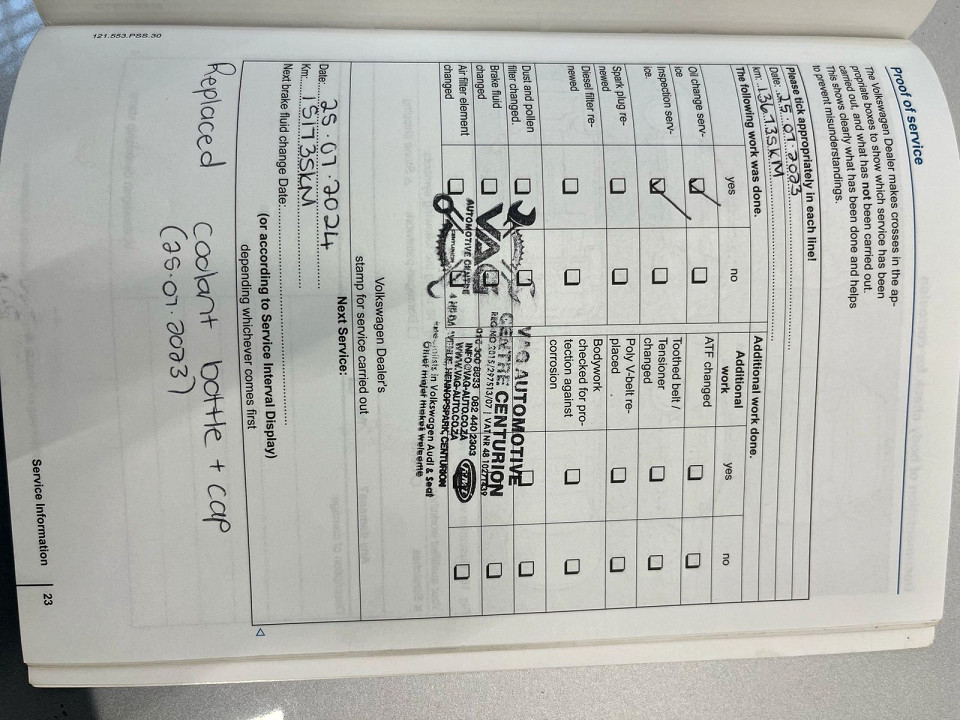 Proof of service
The Volkswagen Dealer makes crosses in the ap-
propriate boxes to show which service has been
carried out, and what has not been carried out.
This shows clearly what has been done and helps
to prevent misunderstandings.
Please tick appropriately in each line!
Date: 25.07.2023
km: 136735KM
The following work was done.
Additional work done.
yes
no
Additional
work
yes
no
Oil change serv-
ice
ATF changed
Inspection serv-
ice.
Toothed belt /
Tensioner
changed
Spark plug re-
newed
Poly V-belt re-
placed
Diesel filter re-
newed
Bodywork
checked for pro-
tection against
corrosion
Dust and pollen
filter changed.
Brake fluid
changed
Air filter element
changed
VAG
AUTOMOTIVE CENTRE
CENTURION
VAG AUTOMOTIVE
CENTRE CENTURION
REG NO 2015/297513/07 | VAT NR
082 440 2303
INFO@VAG-AUTO.CO.ZA
WWW.VAG-AUTO.CO.ZA
HENNOPSPARK, CENTURION
in Volkswagen Audi & Seat
Other major makes welcome
Volkswagen Dealer's
stamp for service carried out
Next Service:
Date: 25.07.2024
Km: 151735KM
Next brake fluid change Date:
(or according to Service Interval Display)
depending whichever comes first
Replaced coolant bottle + cap
(25.07.2023)
121.553.PSS.30
Service Information
23